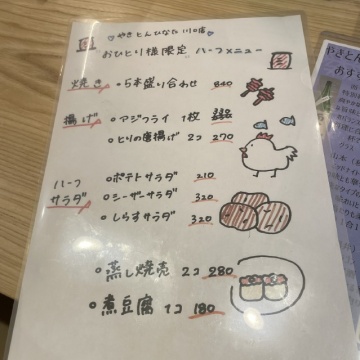 ♡やきとんひなた 川口店♡
おひとり様限定 ハーフメニュー
焼き ○5本盛り合わせ 840
揚げ ○アジフライ 1枚
○とりの唐揚げ 2コ 270
ハーフ
サラダ
○ポテトサラダ 210
○シーザーサラダ 320
○しらすサラダ 320
○蒸し焼売 2コ 280
○煮豆腐 1コ 180
やきとん
おす